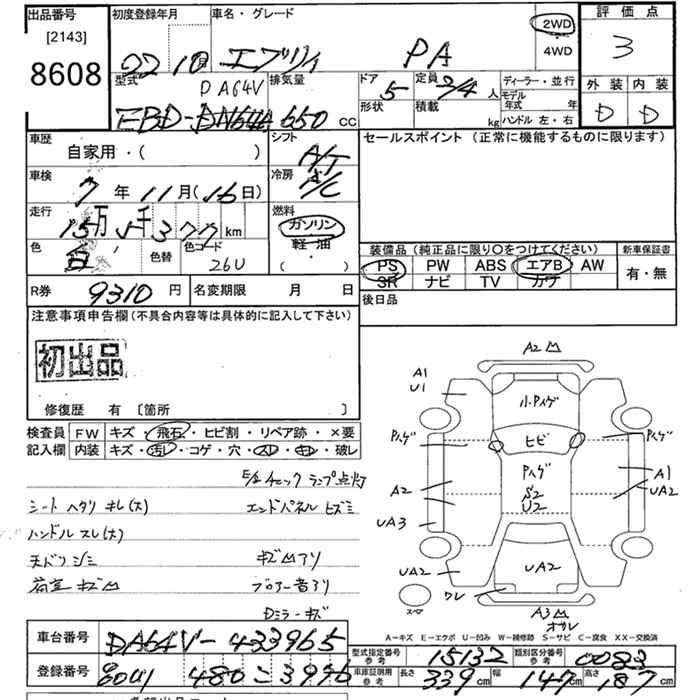 出品番号
[2143]
8608
初度登録年月
22 10月
車名・グレード
エブリィ PA
2WD
4WD
評価点
3
外装 内装
D D
型式
DA64V
EBD-
排気量
650 cc
ドア
5
形状
定員
2/4 人
積載
kg
ディーラー・並行
モデル年式 年
ハンドル 左・右
車歴
自家用・( )
シフト
A/T
車検
7年11月(16日)
冷房
A/C
走行
15万 千377 km
燃料
ガソリン
軽油
( ・ )
色
白
色替
色コード
26U
セールスポイント (正常に機能するものに限ります)
装備品 (純正品に限り○をつけてください)
PS PW ABS エアB AW
SR ナビ TV カワ
新車保証書
有・無
R券 9310 円
名変期限 月 日
後日品
注意事項申告欄 (不具合内容等は具体的に記入して下さい)
初出品
修復歴 有 [箇所 ]
検査員記入欄
FW キズ・飛石・ヒビ割・リペア跡・×要
内装 キズ・汚レ・コゲ・穴・スレ・キレ・破レ
E/Gチェックランプ点灯
シートヘタリ キレ(大) エンドパネル ヒズミ
ハンドルスレ(大)
天バリシミ キズ凹アリ
荷室キズ凹 ブロアー音アリ
Dミラーキズ
A2凹
A1
U1
小Pハゲ
ヒビ
Pハゲ
Pハゲ
Pハゲ
S2
U2
A1
UA2
A2
UA3
UA2
UA2
UA2
ワレ
A3凹
スペア
A-キズ E-エクボ U-凹み W-補修跡 S-サビ C-腐食 XX-交換済
車台番号 DA64V-433965
登録番号 480 こ 3996
型式指定番号 参考 15132
類別区分番号 参考 0083
車庫証明用 参考
長さ 339 cm 幅 147 cm 高さ 187 cm